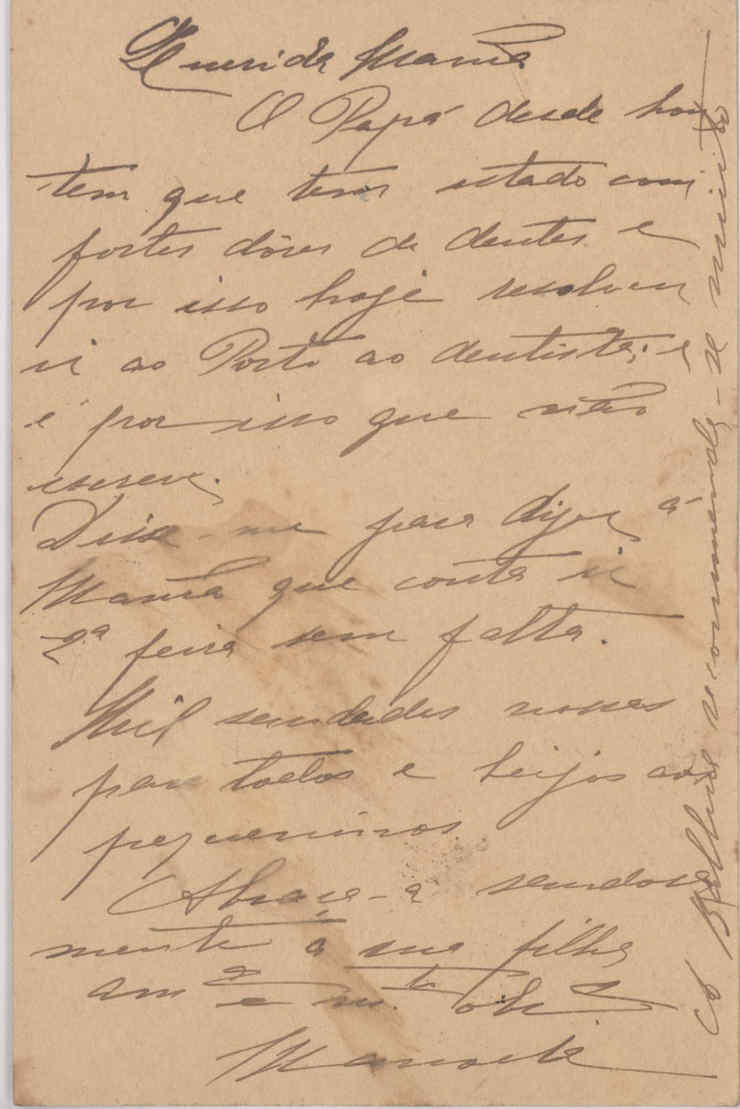 Querida Mamã
O Papá desde hon
tem que tem estado com
fortes dôres de dentes e
por isso hoje resolveu
ir ao Porto ao dentista; e
é por isso que não
escreve.
Disse-me para dizer á
Mamã que conta ir
2ª feira sem falta.
Mil saudades nossas
para todos e beijos aos
pequeninos
Abraça-a saudosa
mente a sua filha
amª e mto
A recommenda-se muito